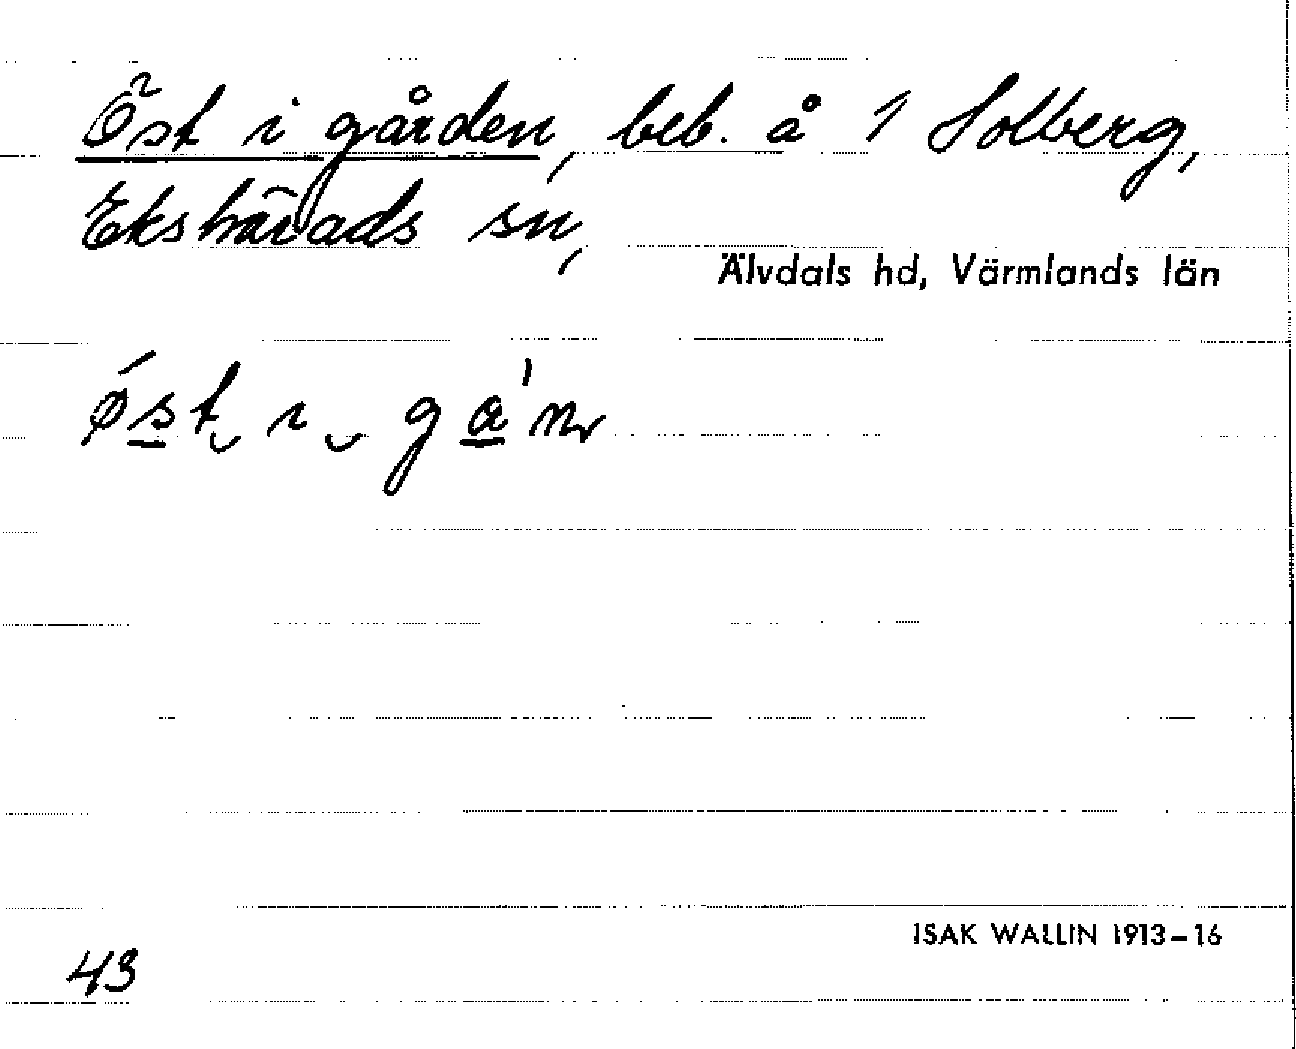 Öst i gården, beb. å 1 Solberg,
Ekshärads sn,
Älvdals hd, Värmlands län
ǿst i ga'nr
ISAK WALLIN 1913–16
43